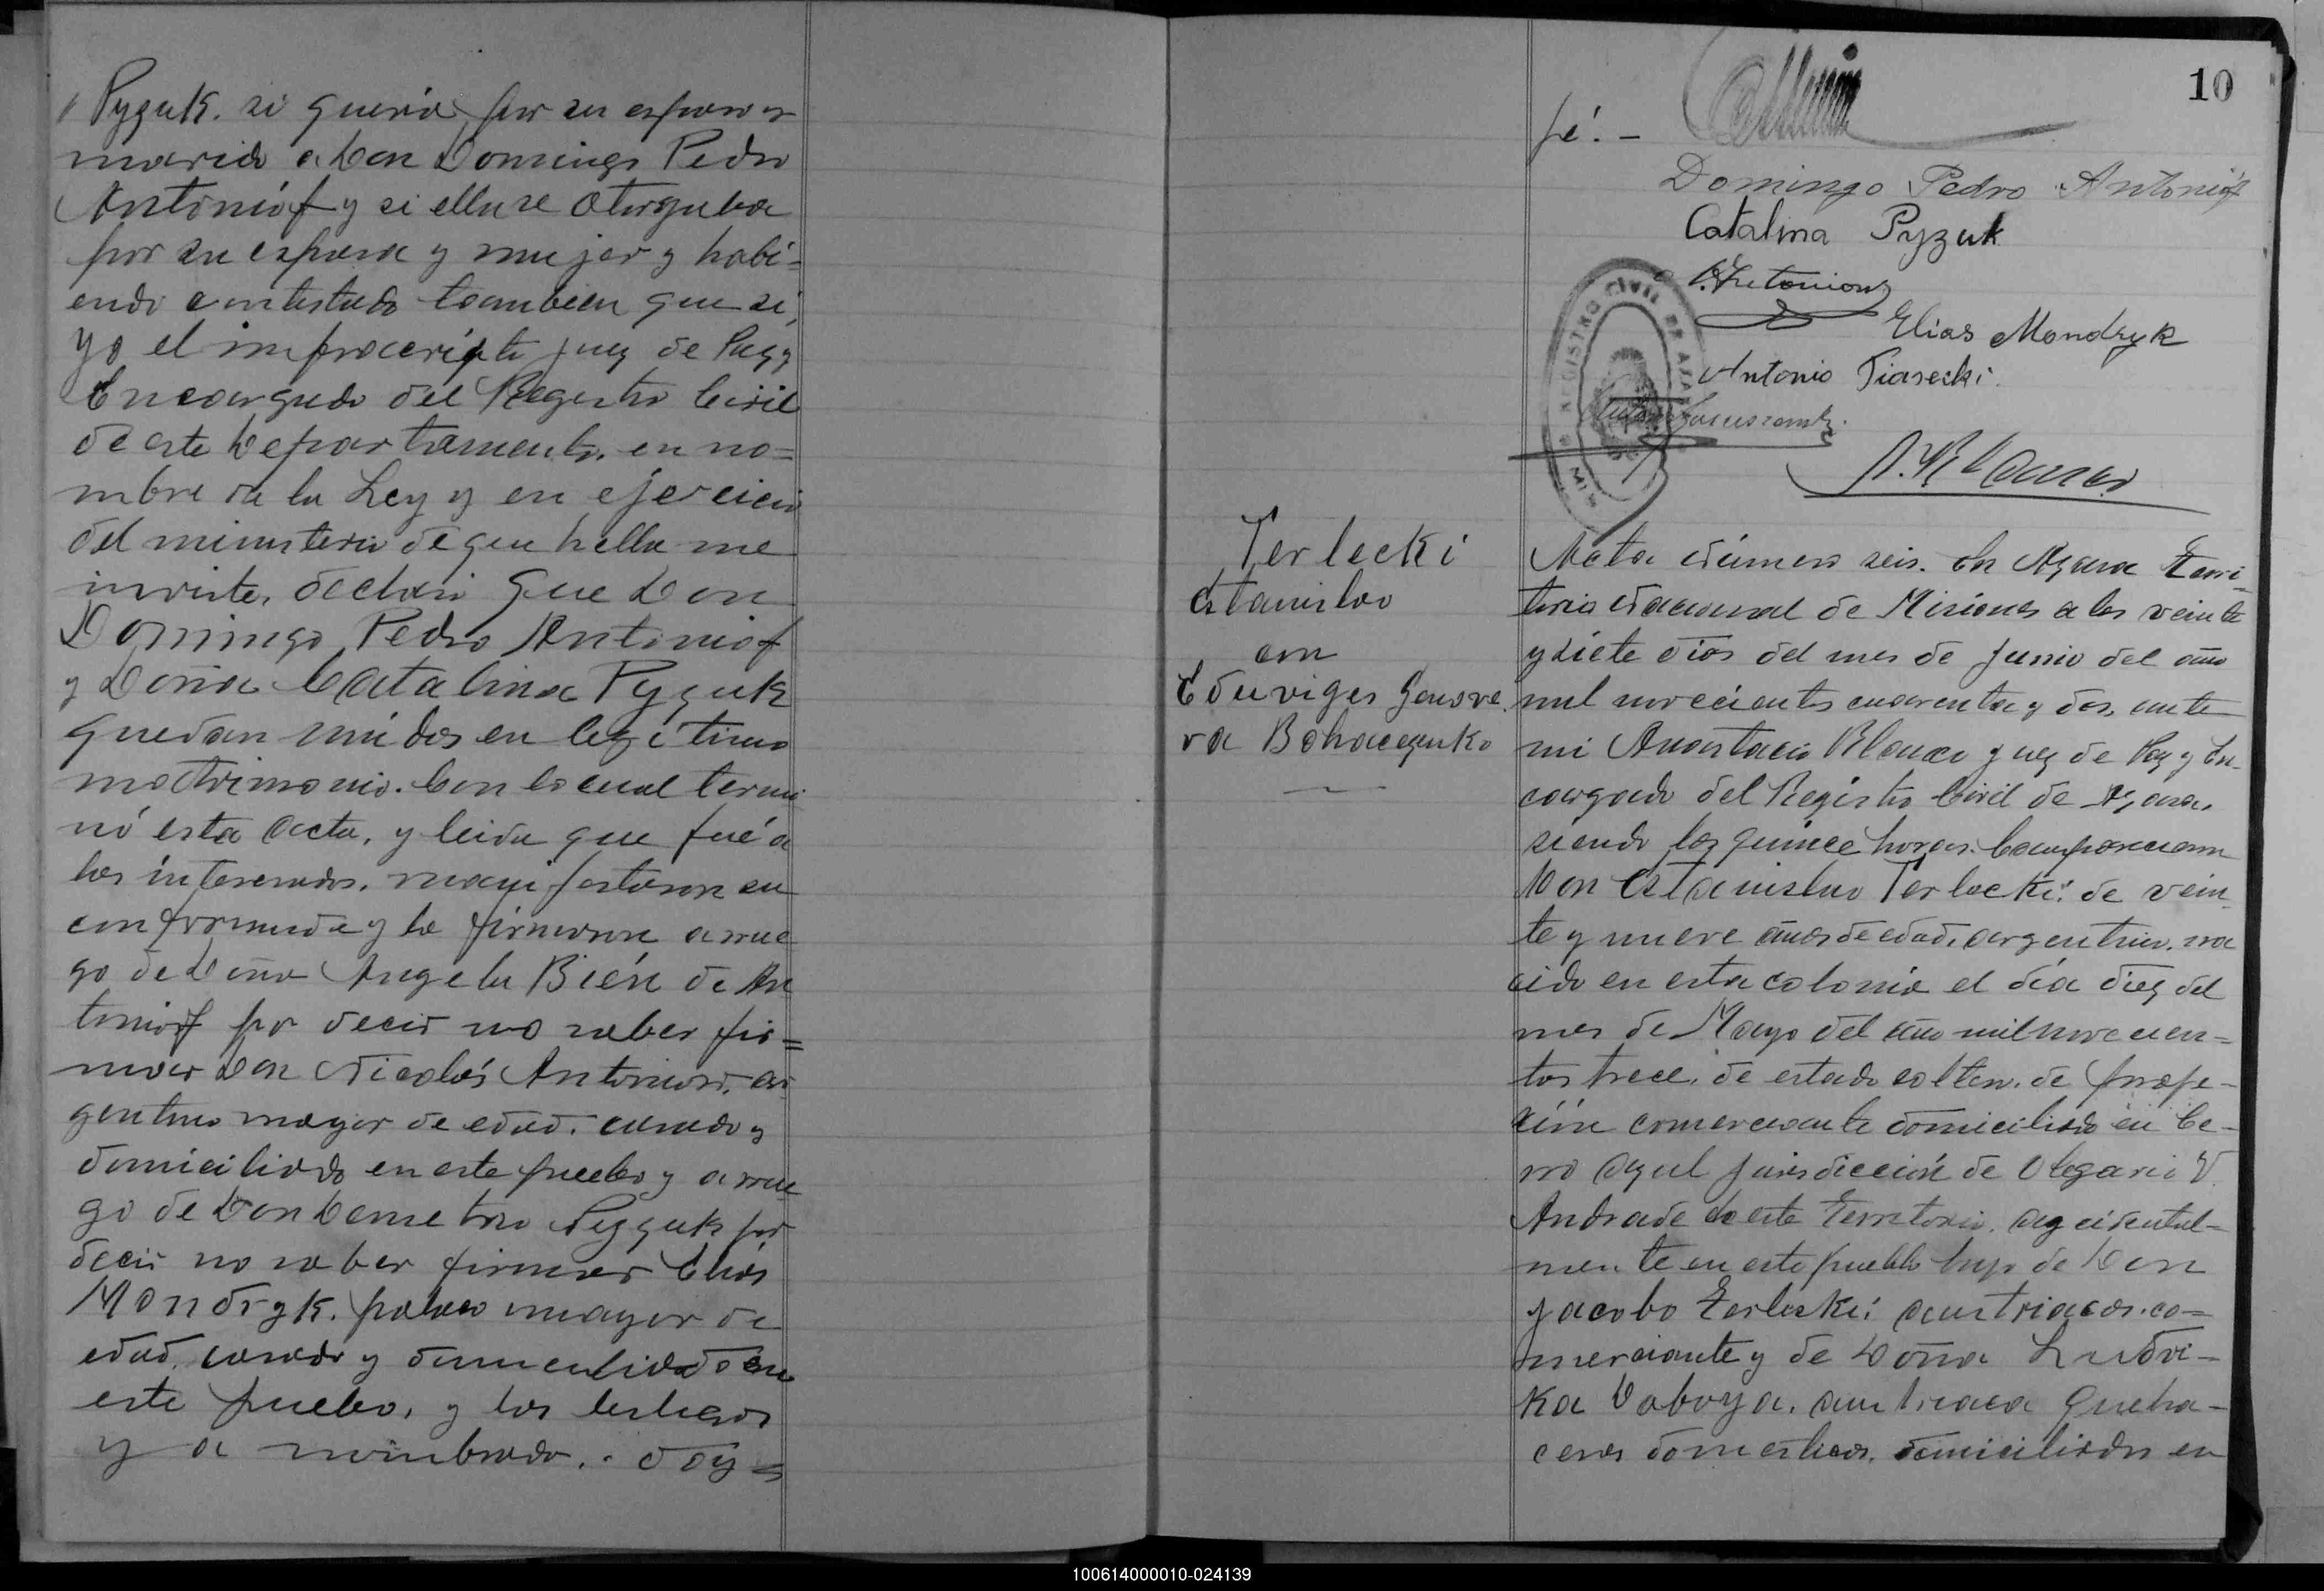 Pyzuk. si queria por su esposo y
marido a Don Domingo Pedro
Antoniof y si ella se otorgaba
por su esposa y mujer y habi=
endo contestado tambien que si,
yo el infrascripto Juez de Paz y
Encargado del Registro Civil
de este Departamento, en no=
mbre de la Ley y en ejercicio
del ministerio de que hella me
inviste, declaro que Don
Domingo Pedro Antoniof
y Doña Catalina Pyzuk
quedan unidos en legítimo
matrimonio. Con lo cual termi
nó esta acta, y leida que fué a
los interesados, manifestaron su
conformida y la firmaron a rue
go de Doña Angela Bién de An
toniof por decir no saber fir=
mar Don Nicolás Antoniow, ar
gentino mayor de edad, casado y
domiciliado en este pueblo y a rue
go de Don Demetrio Pyzuk por
decir no saber firmar Elías
Mondryk. polaco mayor de
edad, casado y domiciliado en
este pueblo, y los testigos
y a nombrado. doy =
10
fé. -
Domingo Pedro Antoniof
Catalina Pyzuk
Antoniow
Elias Mondzyk
Antonio Piasecki
REGISTRO CIVIL DE AZARA
A. Blanco
Terlecki
Estanislao
con
Eduviges Genove
va Bohaczenko
Acta número seis. En Azara Terri-
torio Nacional de Misiones a los veinte
y siete días del mes de Junio del año
mil novecientos cuarenta y dos, ante
mi Anastacio Blanco Juez de Paz y En-
cargado del Registro Civil de Azara,
siendo las quince horas: Comparecieron
Don Estanislao Terlecki: de vein
te y nueve años de edad, argentino, na
cido en esta colonia el día diez del
mes de Mayo del año mil novecien=
tos trece, de estado soltero, de profe-
sión comerciante domiciliado en Ce-
rro Azul Jurisdicción de Olegario V.
Andrade de este Territorio, accidental-
mente en este pueblo hijo de Don
Jacobo Terlecki: austriaco, co=
merciante y de Doña Ludvi-
ka Daboya, austriaca queha-
ceres domesticos, domiciliados en
100614000010-024139